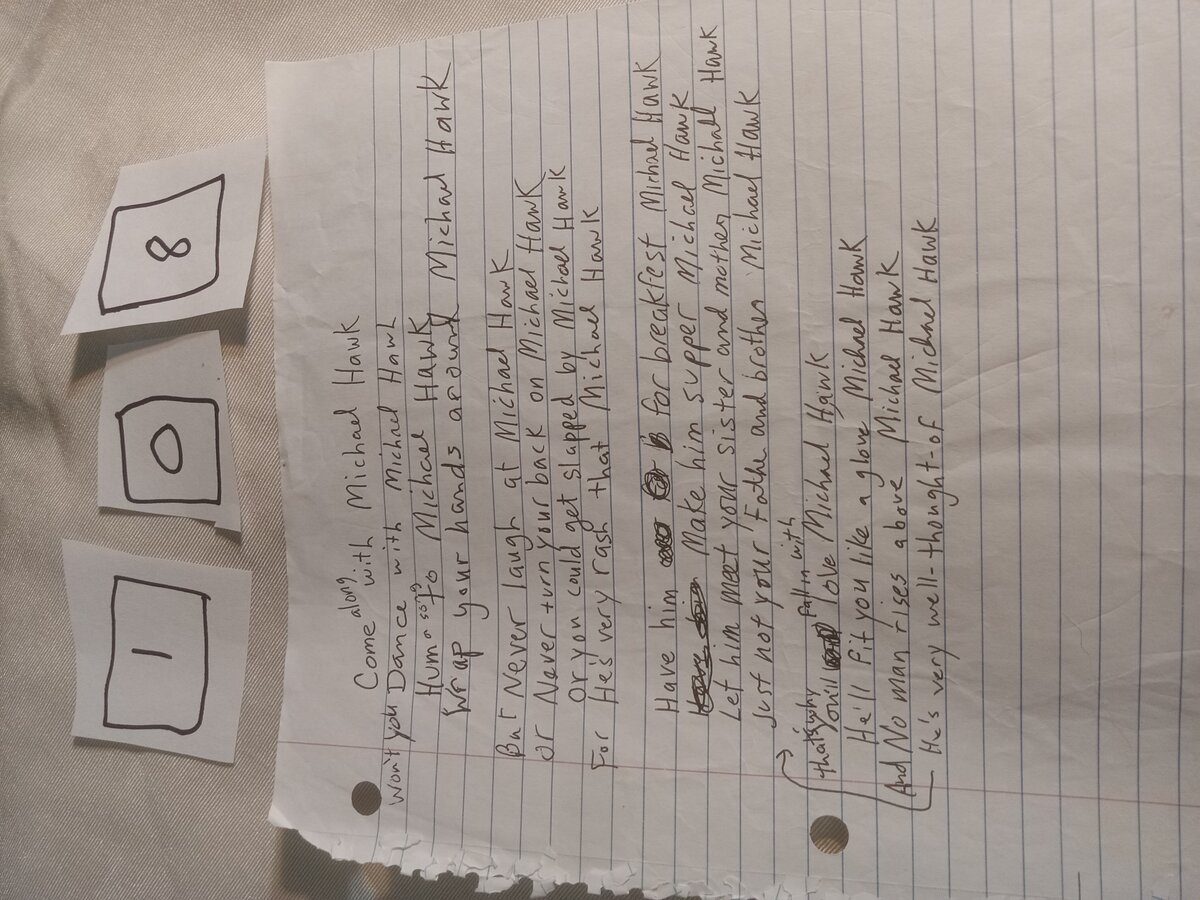 1 0 8
Come along with Michael Hawk
Won't you Dance with Michael Hawk
Hum a song to Michael Hawk
Wrap your hands around Michael Hawk
But Never laugh at Michael Hawk
or Never turn your back on Michael Hawk
or you could get slapped by Michael Hawk
For He's very rash that Michael Hawk
Have him for breakfest Michael Hawk
Make him supper Michael Hawk
Let him meet your sister and mother Michael Hawk
Just not your Fathe and brother Michael Hawk
that's why fall in with
You'll love Michael Hawk
He'll fit you like a glove Michael Hawk
And No man rises above Michael Hawk
He's very well-thought-of Michael Hawk